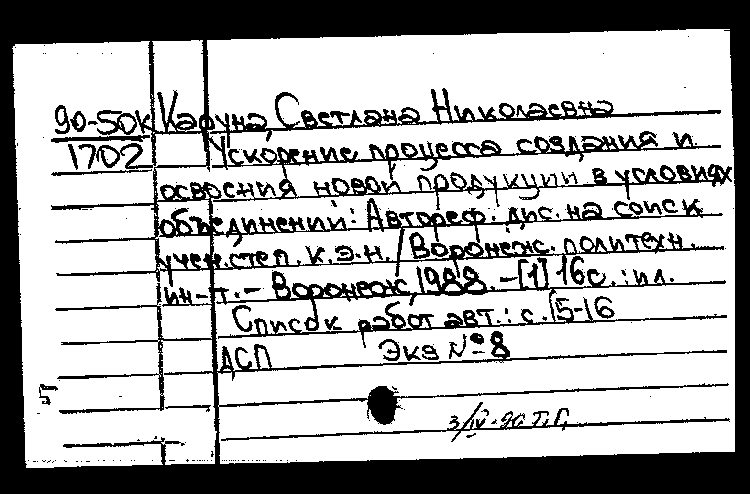 90-50К Каруна, Светлана Николаевна
1702 Ускорение процесса создания и
освоения новой продукции в условиях
объединений: Автореф. дис. на соиск
учен. степ. к.э.н. / Воронеж. политехн.
ин-т. - Воронеж, 1988. - [1] 16с. : ил.
Список работ авт.: с. 15-16
ДСП Экз № 8
3/IV-90 Т.Г.